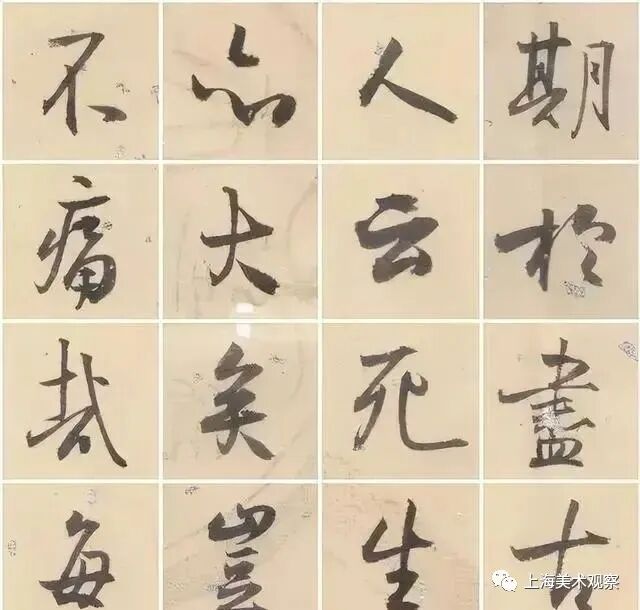 期於盡古
人云死生
亦大矣豈
不痛哉每
上海美术观察